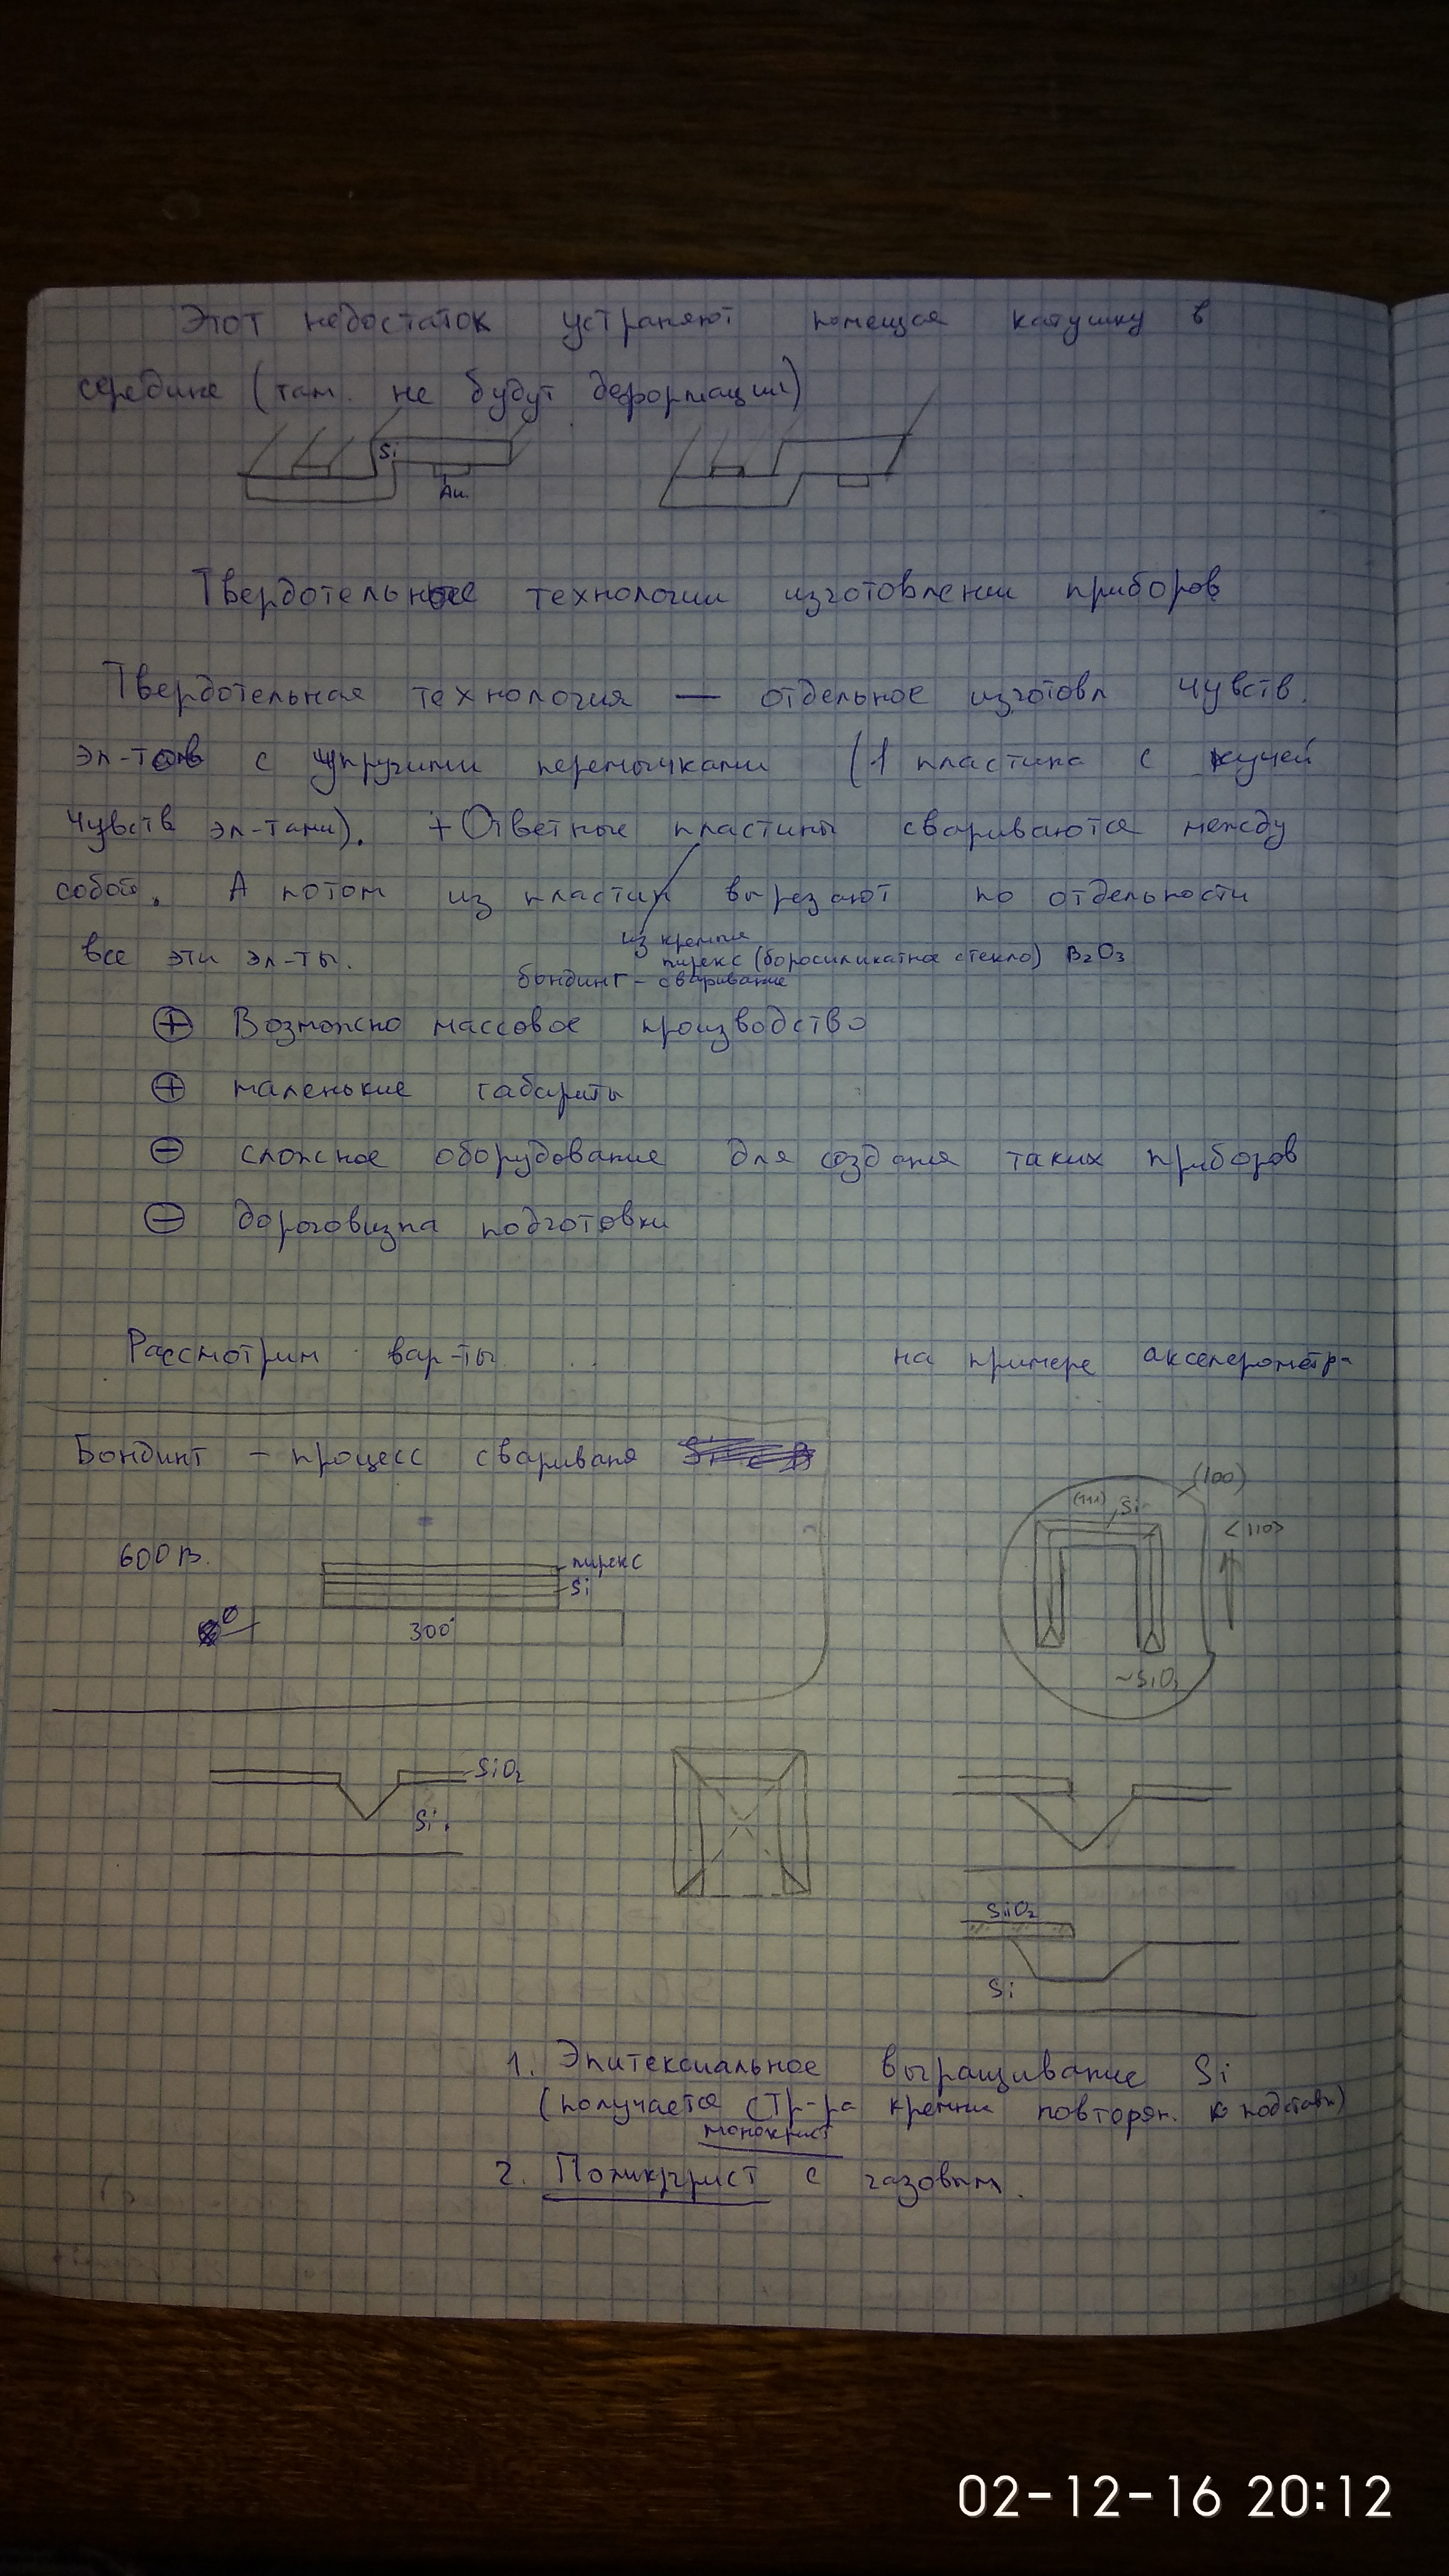 Этот недостаток устраняют помещая катушку в
середине (там не будут деформации)
Si
Au
Твердотельные технологии изготовлении приборов
Твердотельная технология — отдельное изготовл чувств.
эл-тов с упругими перемычками (1 пластина с кучей
чувств эл-тами). + Ответные пластины свариваются между
собой. А потом из пластин вырезают по отдельности
все эти эл-ты.
из кремния
пирекс (боросиликатное стекло) B₂O₃
бондинг - сваривание
⊕ Возможно массовое производство
⊕ маленькие габариты
⊖ сложное оборудование для создания таких приборов
⊖ дороговизна подготовки
Рассмотрим вар-ты на примере акселерометра
Бондинг - процесс сваривания
600 В.
пирекс
Si
0
300°
(100)
(111)
Si
<110>
~SiO₂
SiO₂
Si
SiO₂
Si
1. Эпитексиальное выращивание Si
(получается стр-ра кремния повторян. к подставк)
монокрист
2. Поликрист с газовым.
02-12-16 20:12